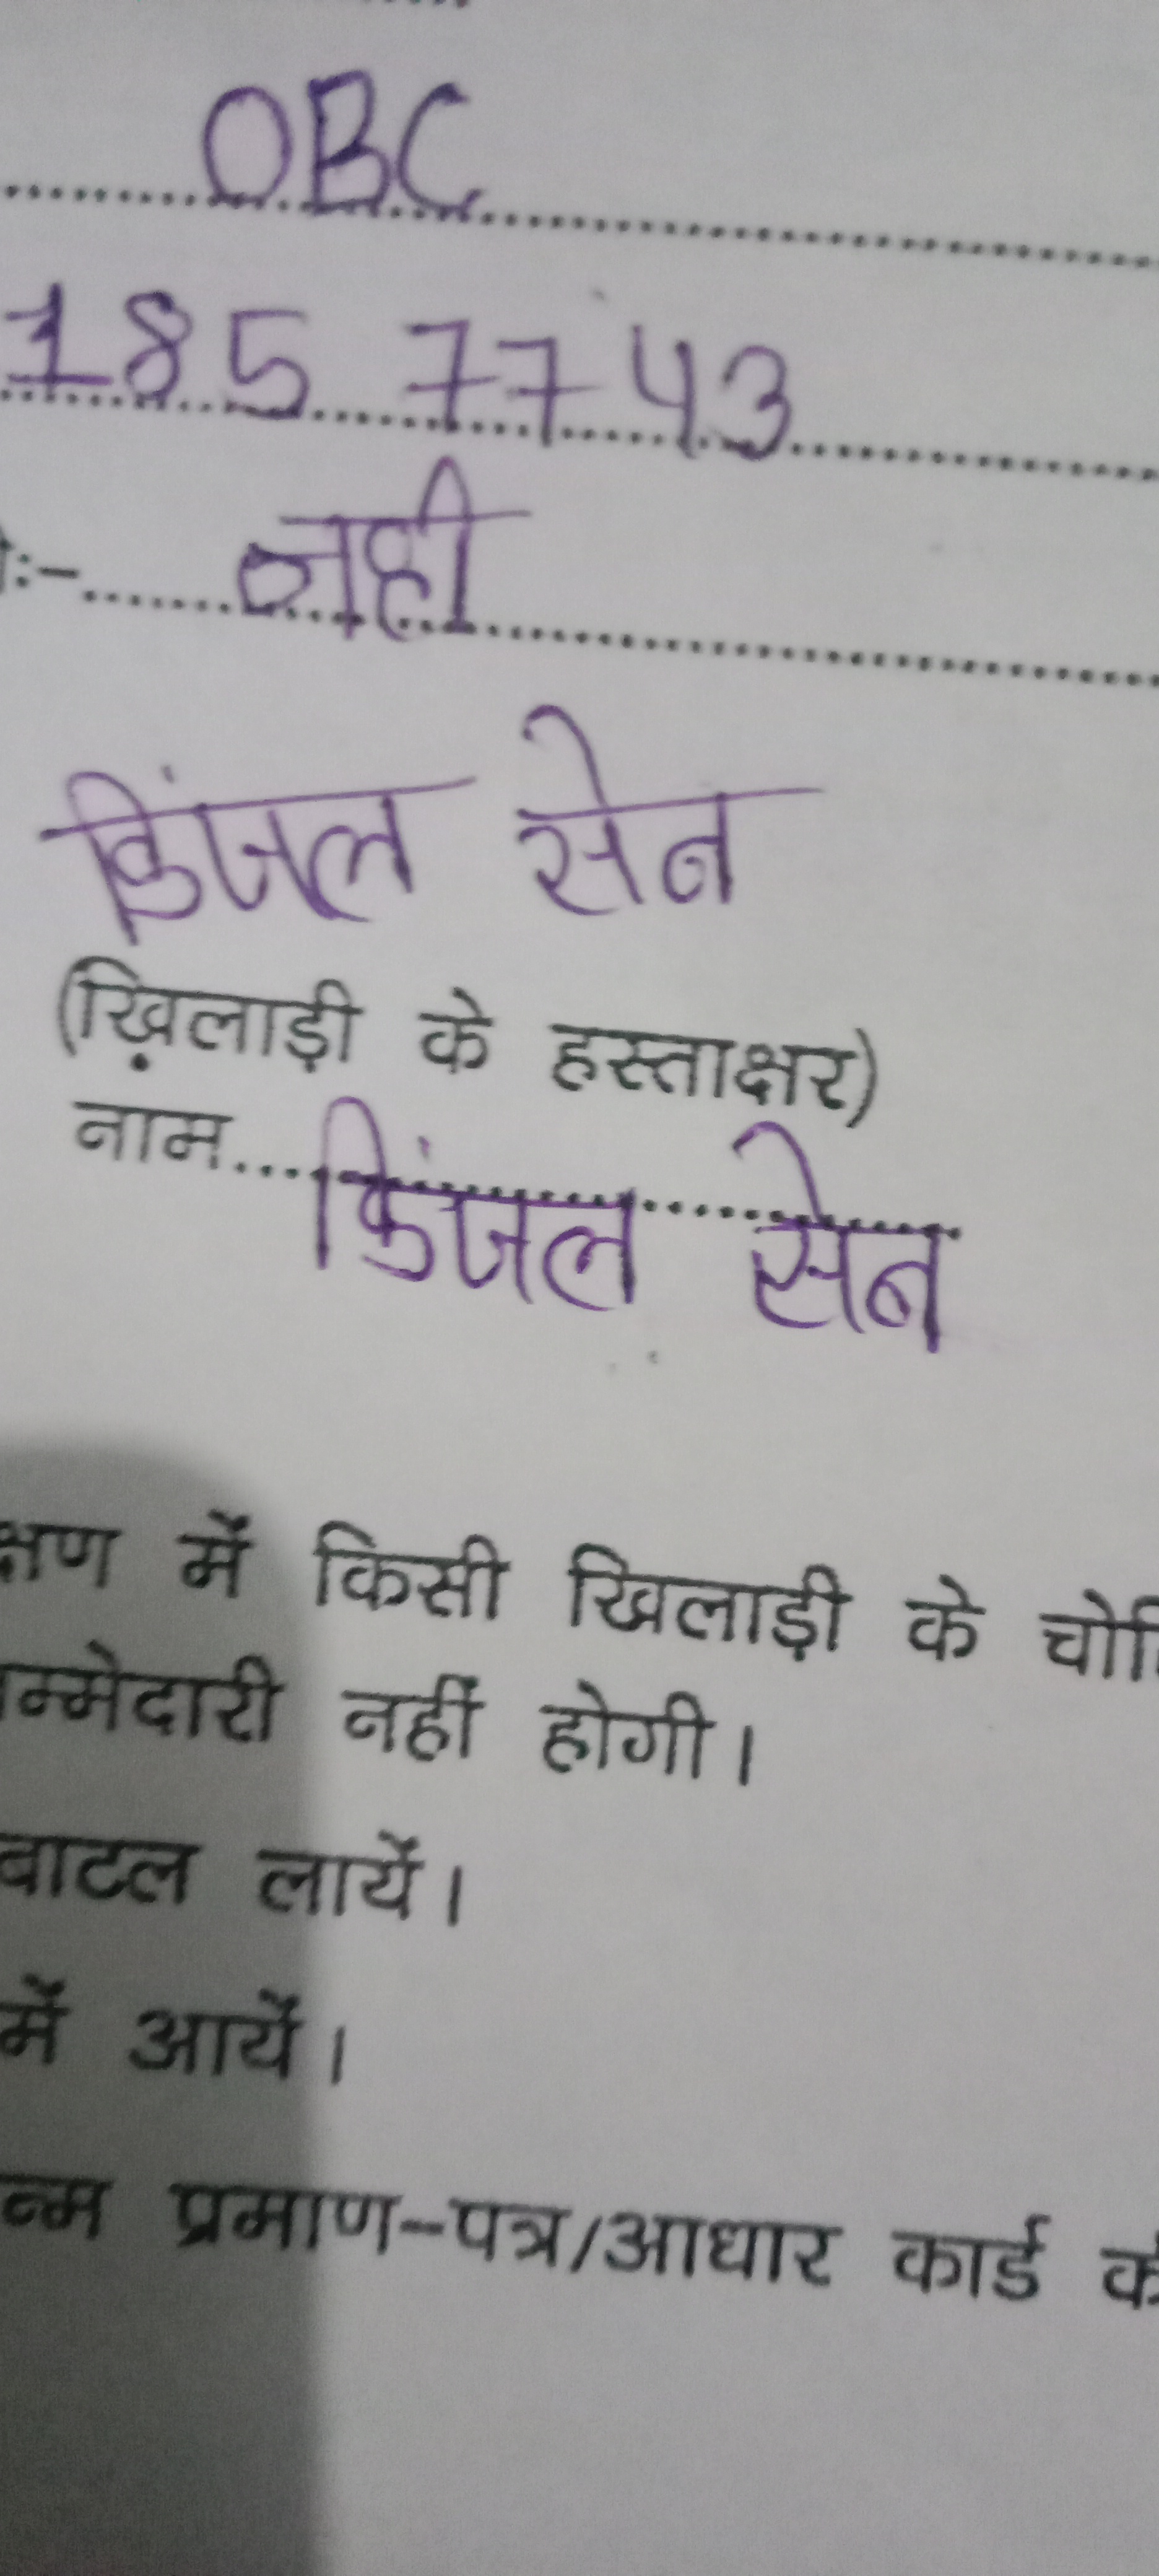 OBC
1857743
:- नही
किंजल सेन
(ख़िलाड़ी के हस्ताक्षर)
नाम किंजल सेन
क्षण में किसी खिलाड़ी के चो
म्मेदारी नहीं होगी।
बाटल लायें।
में आयें।
न्म प्रमाण-पत्र/आधार कार्ड